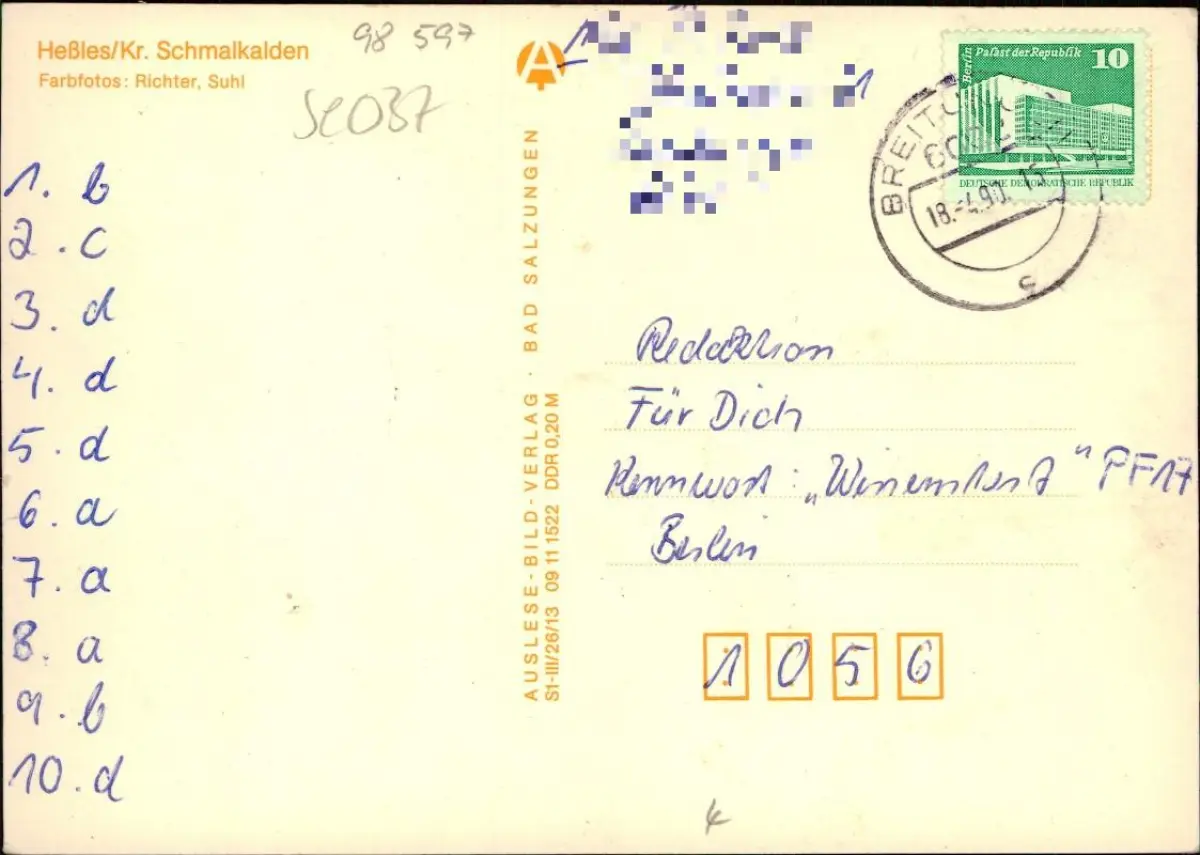 Heßles/Kr. Schmalkalden
Farbfotos: Richter, Suhl
98 597
1. b
2. c
3. d
4. d
5. d
6. a
7. a
8. a
9. b
10. d
AUSLESE-BILD-VERLAG · BAD SALZUNGEN
S1-III/26/13 09 11 1522 DDR 0,20 M
Berlin Palast der Republik 10
DEUTSCHE DEMOKRATISCHE REPUBLIK
18.-4.90. 15
Redaktion
Für Dich
Kennwort: „ " PF 17
Berlin
1056